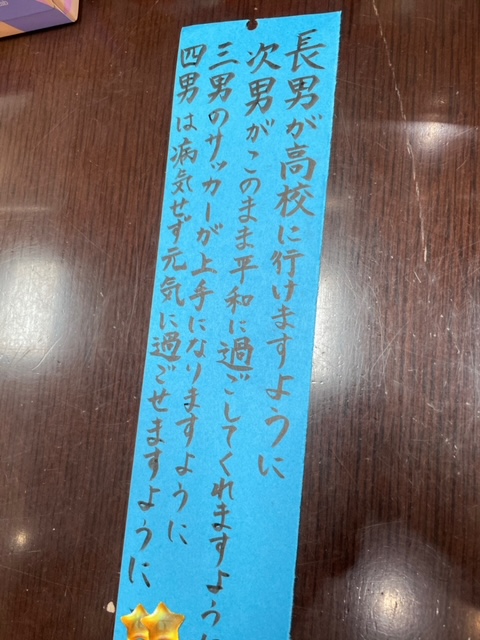 長男が高校に行けますように
次男がこのまま平和に過ごしてくれますように
三男のサッカーが上手になりますように
四男は病気せず元気に過ごせますように